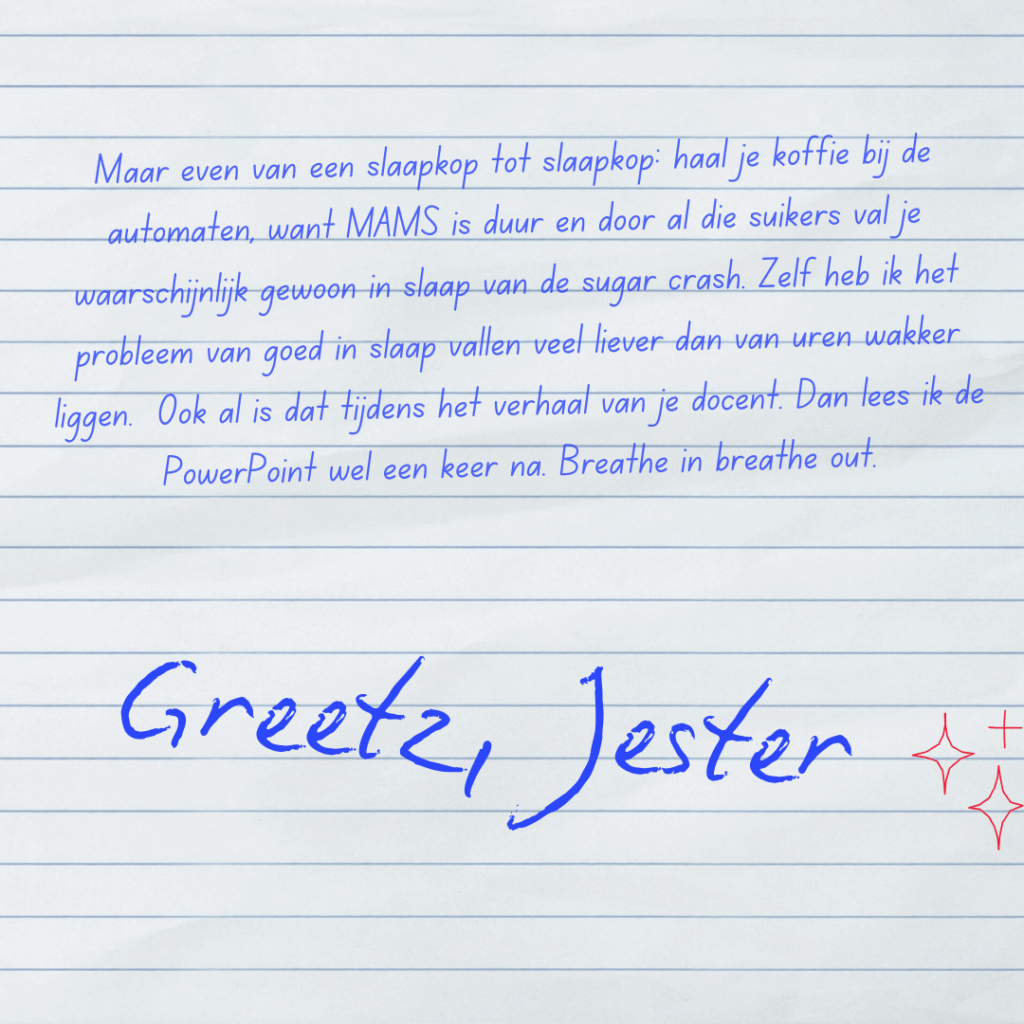 Maar even van een slaapkop tot slaapkop: haal je koffie bij de
automaten, want MAMS is duur en door al die suikers val je
waarschijnlijk gewoon in slaap van de sugar crash. Zelf heb ik het
probleem van goed in slaap vallen veel liever dan van uren wakker
liggen. Ook al is dat tijdens het verhaal van je docent. Dan lees ik de
PowerPoint wel een keer na. Breathe in breathe out.
Greetz, Jester